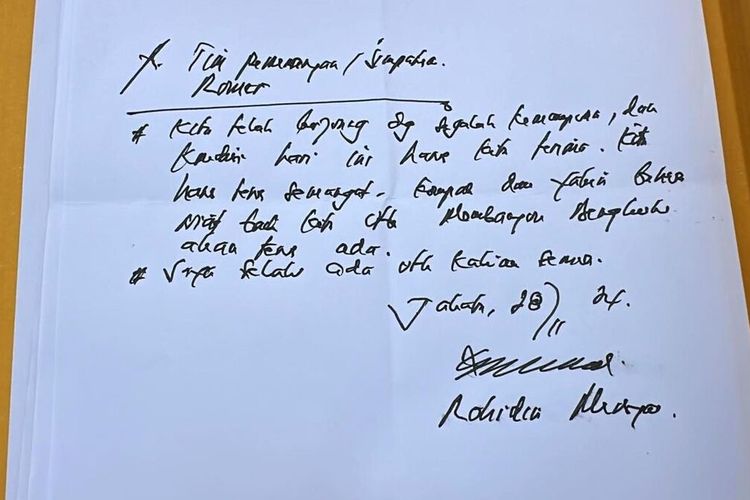 Yr. Tim Pemenangan / Simpatisan.
Romer
# Kita telah berjuang dg segalah kemampuan, dan
kondisi hari ini harus kita terima. Kita
harus terus semangat. kompak dan yakin bahwa
niat baik kita utk Membangun Bengkulu
akan terus ada.
# Saya selalu ada utk kalian semua.
Jakarta, 28/11 24.
Rohidin Mersyah.